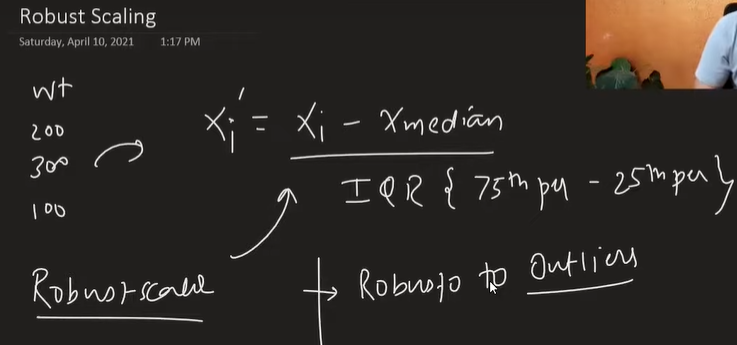 Robust Scaling
Saturday, April 10, 2021 1:17 PM
wt
200
300
100
Xi' = Xi - Xmedian
IQR { 75th per - 25th per }
Robust scale
→ Robust to Outliers